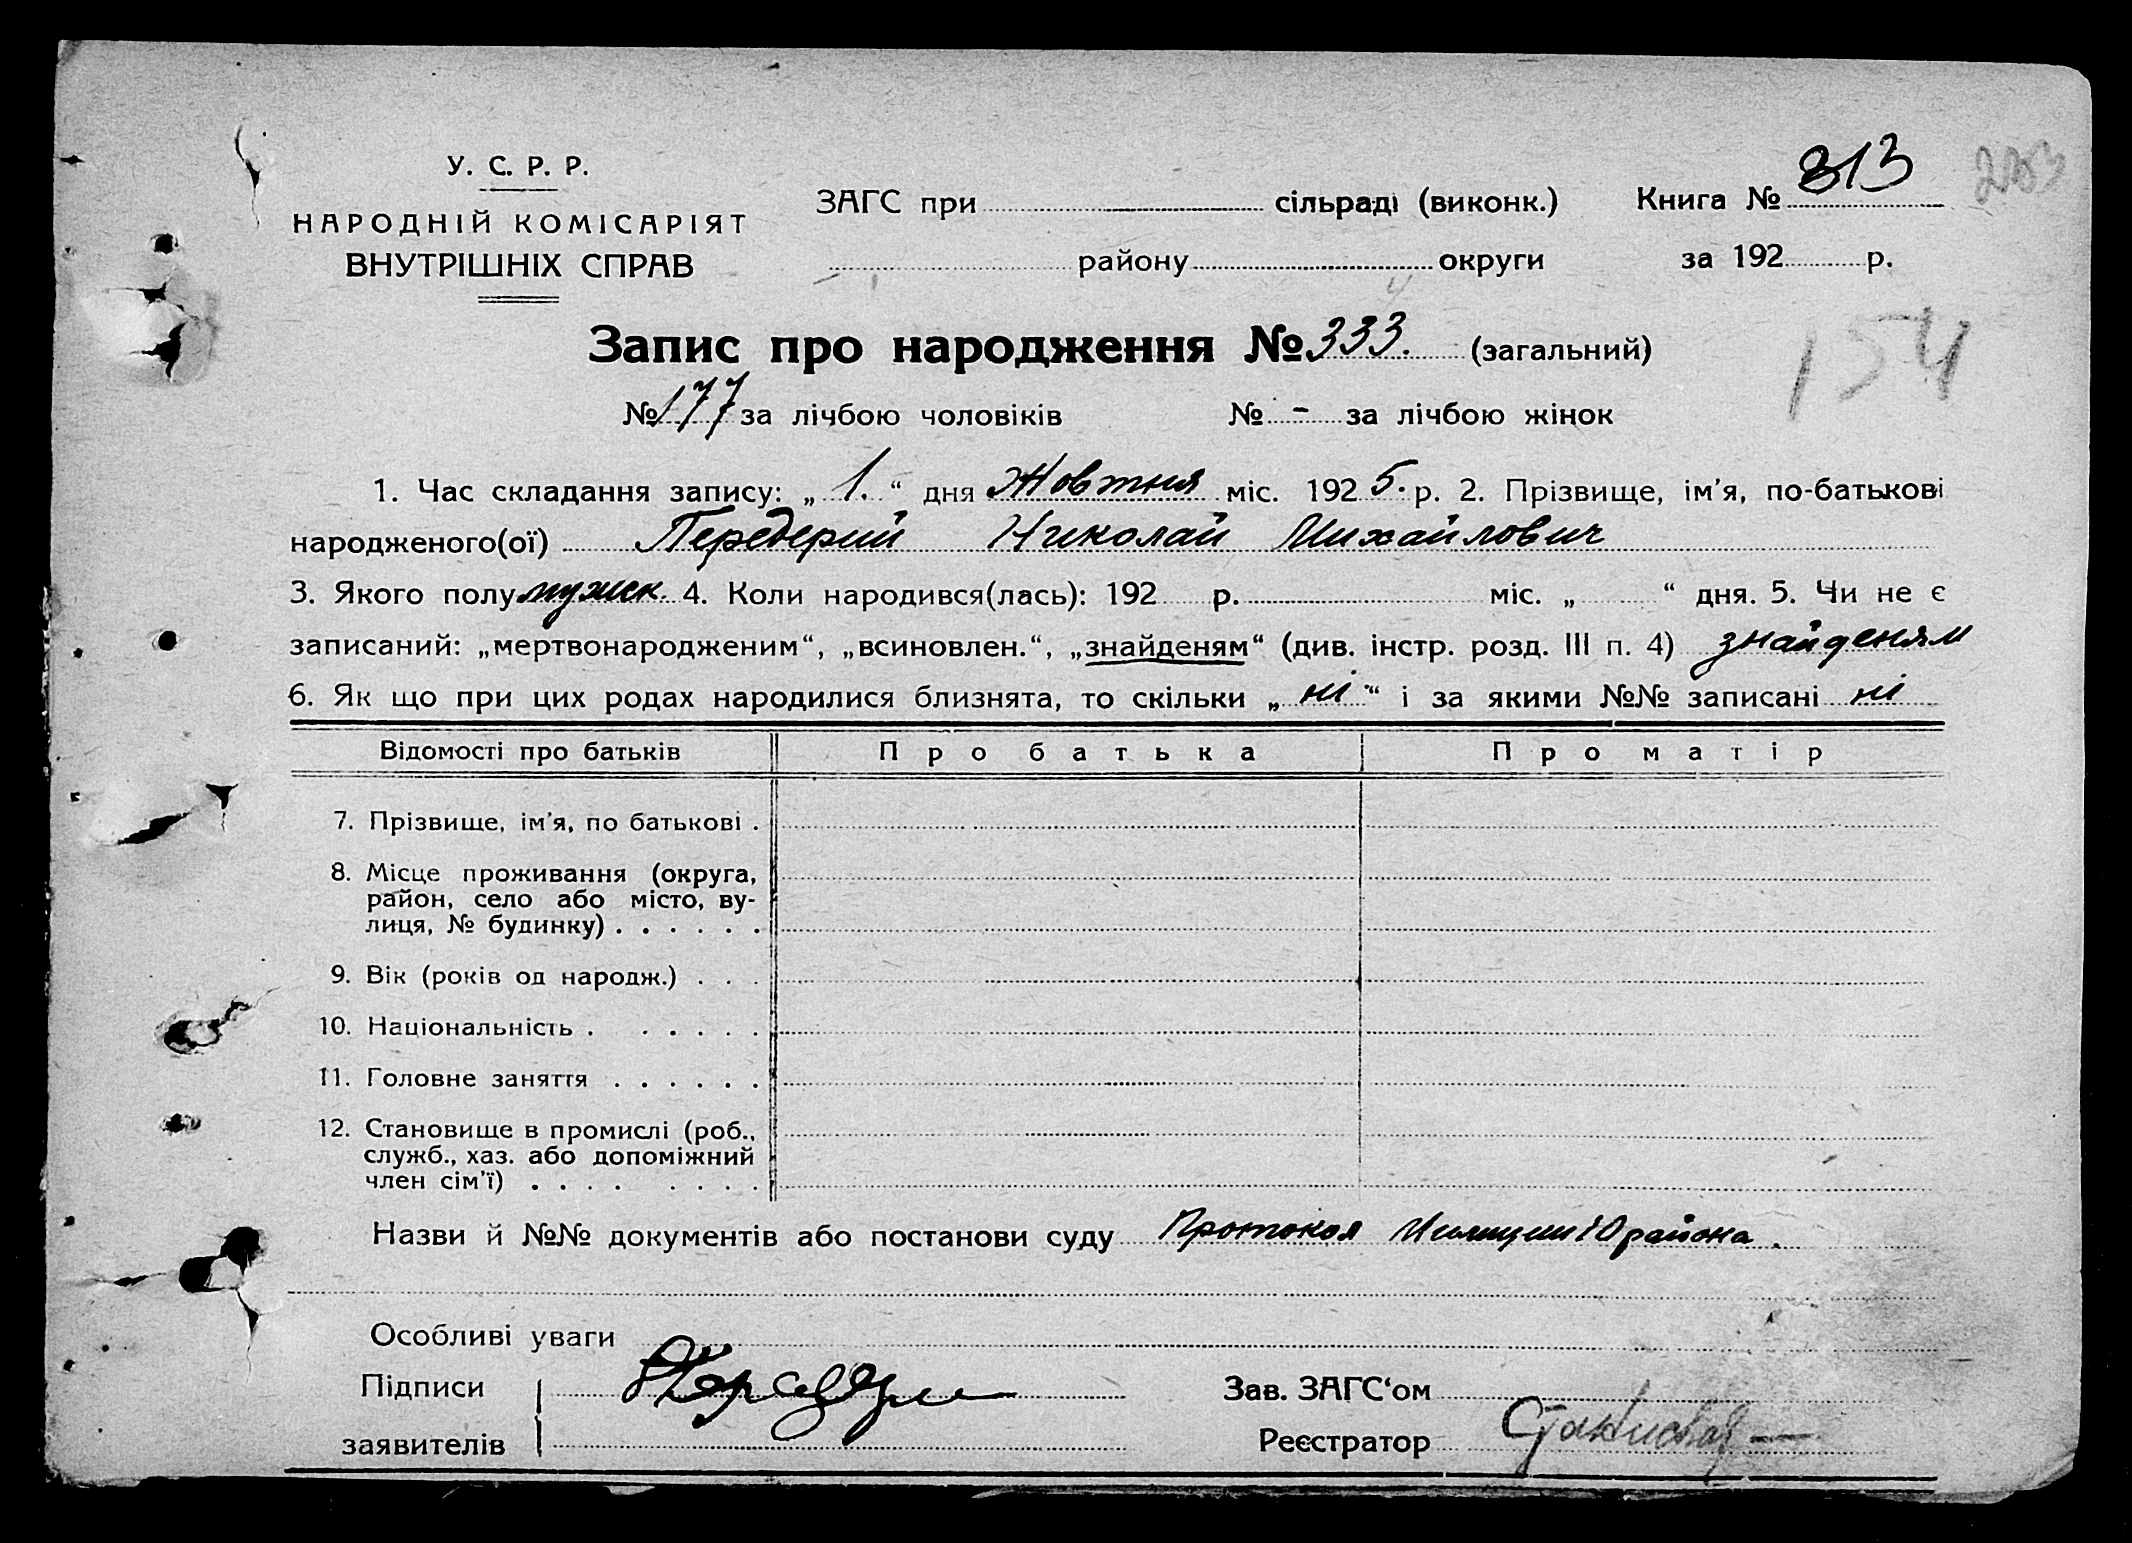 У. С. Р. Р.
НАРОДНІЙ КОМІСАРІЯТ
ВНУТРІШНІХ СПРАВ
ЗАГС при сільраді (виконк.)
району округи
Книга № 313
за 192 р.
154
Запис про народження № 333. (загальний)
№ 177 за лічбою чоловіків № - за лічбою жінок
1. Час складання запису: „ 1. “ дня Жовтня міс. 192 5. р. 2. Прізвище, ім'я, по-батькові
народженого(ої) Передерий Николай Михайлович
3. Якого полу мужск. 4. Коли народився(лась): 192 р. міс. „ “ дня. 5. Чи не є
записаний: „мертвонародженим“, „всиновлен.“, „знайденям“ (див. інстр. розд. III п. 4) знайденям
6. Як що при цих родах народилися близнята, то скільки „ ні “ і за якими №№ записані ні
Відомості про батьків Про батька Про матір
7. Прізвище, ім'я, по батькові .
8. Місце проживання (округа,
район, село або місто, ву-
лиця, № будинку) . . . . . .
9. Вік (років од народж.) . . .
10. Національність . . . . . .
11. Головне заняття . . . . . .
12. Становище в промислі (роб.,
служб., хаз. або допоміжний
член сім'ї) . . . . . . . .
Назви й №№ документів або постанови суду Протокол района.
Особливі уваги
Підписи
заявителів
Зав. ЗАГС‘ом
Реєстратор